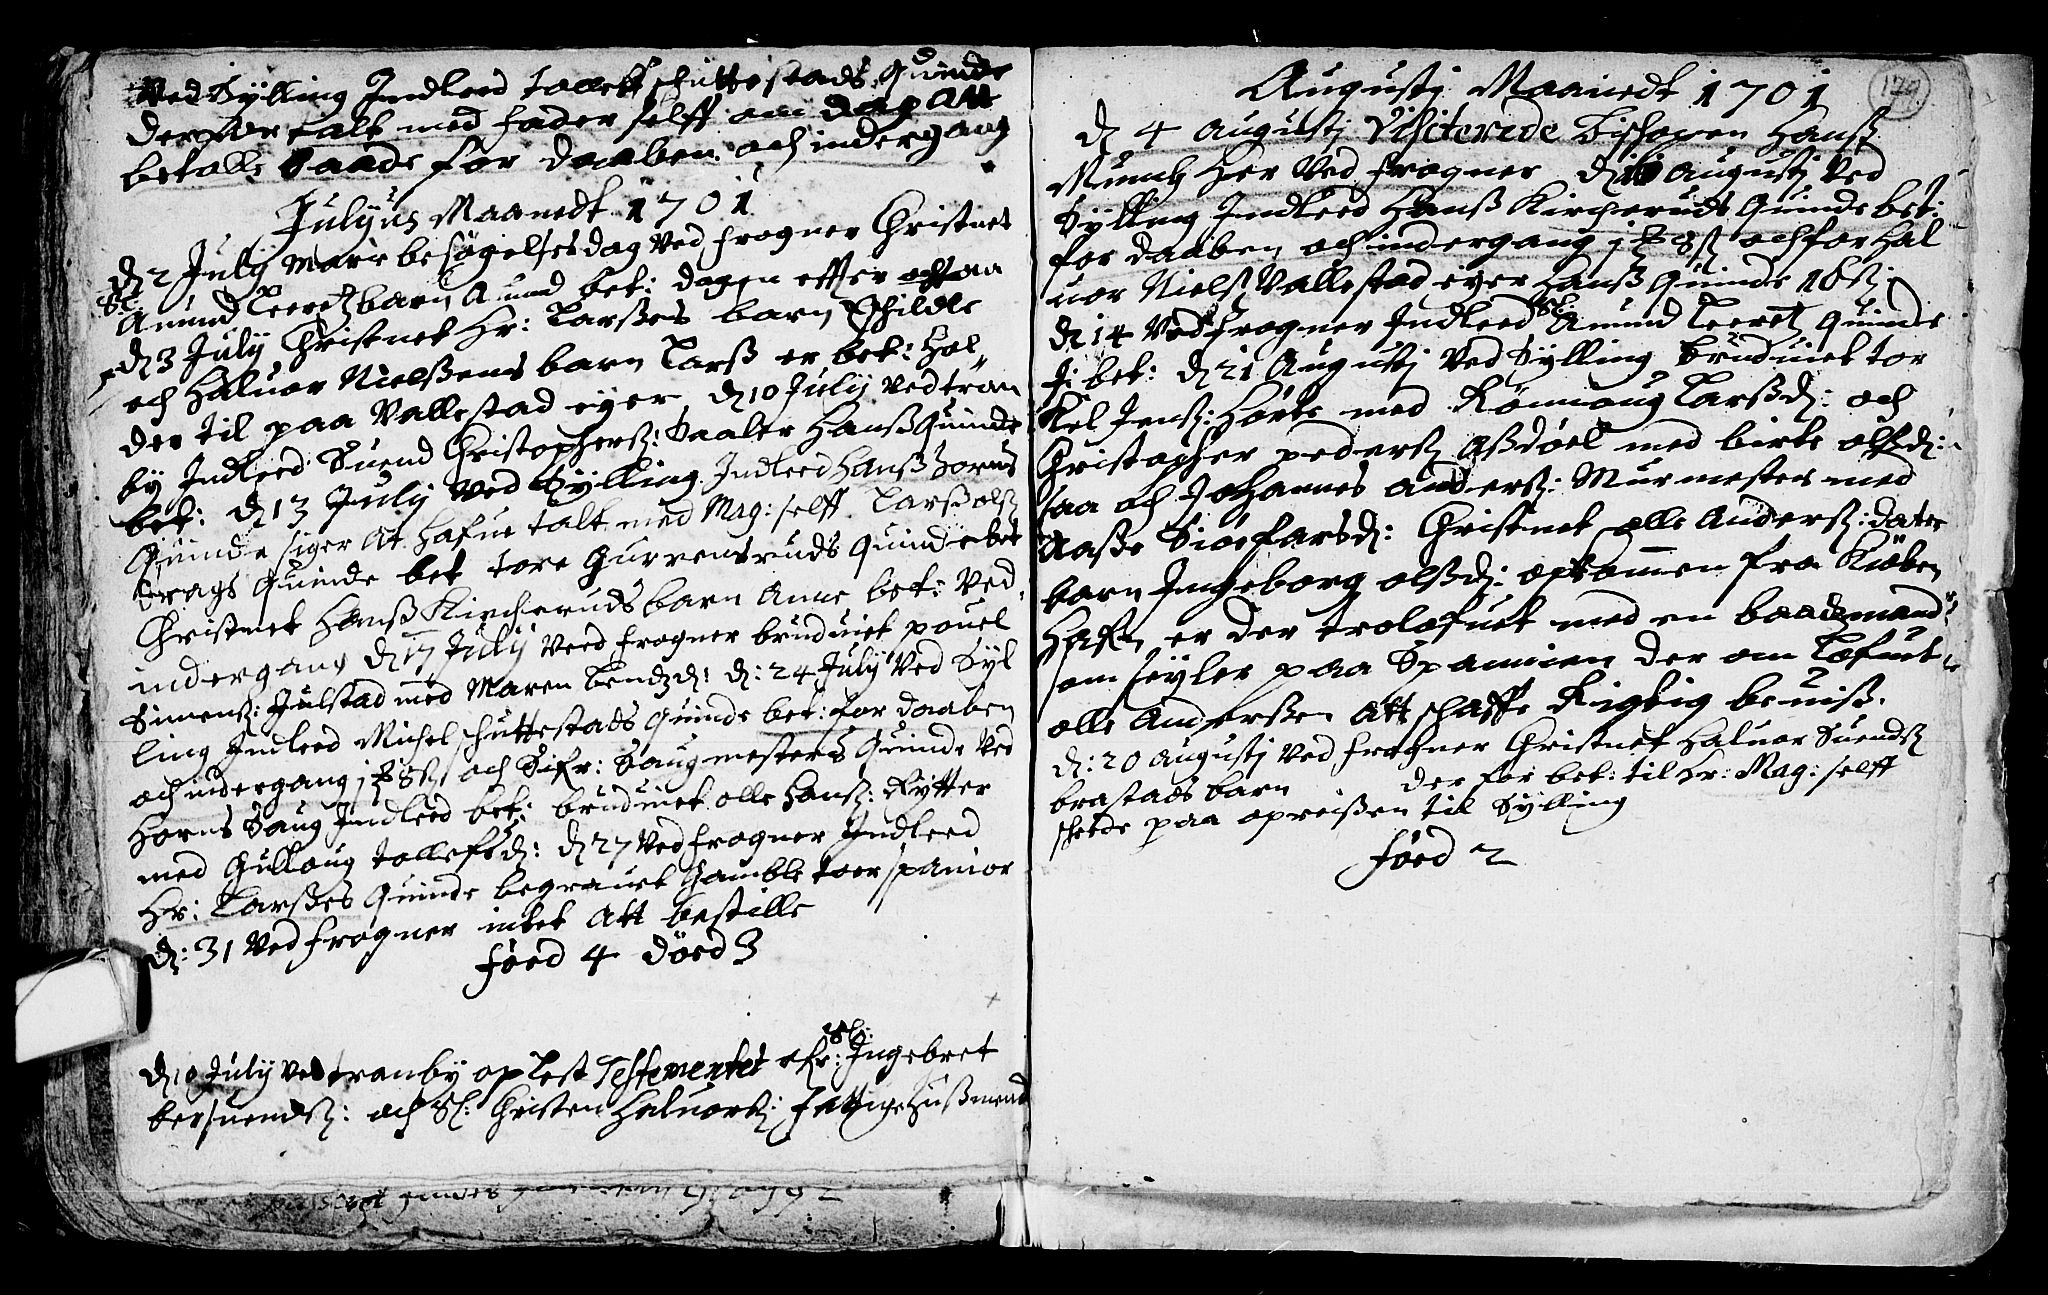 Ved Sylling Indleed Tolleff Schuttestads Quinde
der har talt med fader selff om dag Att
betalle Baade for daaben och indergang
Julyus Maanedt 1701
d 2 July Mariæ besøgelses dag Ved frogner Christnet
Sl:
Amund Leeretz barn Amund bet: dagen effter
d 3 July Christnet Hr: Larsses barn
och Haluor Nielssens barn Larss er bet: Hol
der til paa Vallestad eyer d 10 July Ved tran
by Indleed Suend Christophers: Saaler Hanss Quinde
bet: d 13 July Ved Sylling Indleed Hanss Horns
Quinde siger At Hafue talt med Mag: selff Larss ols
Krags Quinde bet tore Gurrensruds Quinde bet
Christnet Hanss Kircheruds barn Anne bet: Ved
indergang d 17 July Veed frogner bruduiet pouel
Simens: Julstad med Maren Bendzd: d: 24 July Ved Syl
ling Indleed Michel Schuttestads Quinde bet: for daaben
och indergang j 8 s: och Sifr: Saugmesters Quinde Ved
Horns Saug Indleed bet: bruduiet olle Hans: Rytter
med Gulloug tollefsd: d 27 Ved frogner Indleed
Hr: Larsses Quinde begrauet Gamble toer spanior
d: 31 Ved frogner intet Att bestille
føed 4 døed 3
Sl:
d 10 July Ved tranby oplest Testementet efr: Ingebret
bersuends: och Sl: Christen Haluors: fattige Hussmend
170
Augustj Maanedt 1701
d 4 Augustj Visiterede Bischopen Hanss
Munch Her Ved frogner d Augustj Ved
Sylling Indleed Hanss Kircheruds Quinde bet:
for daaben och indergang j 8 s och for Hal
uor Niels Vallestad eyer Hanss Quinde 16 s:
Sl:
d 14 Ved frogner Indleed Amund Leeretz Quinde
J: bet: d 21 Augustj Ved Sylling bruduiet tor
Kel Jens: Hørte med Rønnaug Larssd: och
Christopher peders Assdøel med birte olssd:
saa och Johannes anders: Murmester med
Aasse Siøfarsd: Christnet olle Anders: dater
barn Ingeborg olssd: opkommen fra Kiøben
Hafn er der trolofuet med en baadzmand
som seyler paa Spannien der om Lofuet
olle Anderssen Att schaffe Rigtig beuiss.
d: 20 Augustj Ved frogner Christnet Haluor Suends
brastads barn der for bet: til Hr: Mag: selff
scheede paa opreissen til Sylling
føed 2